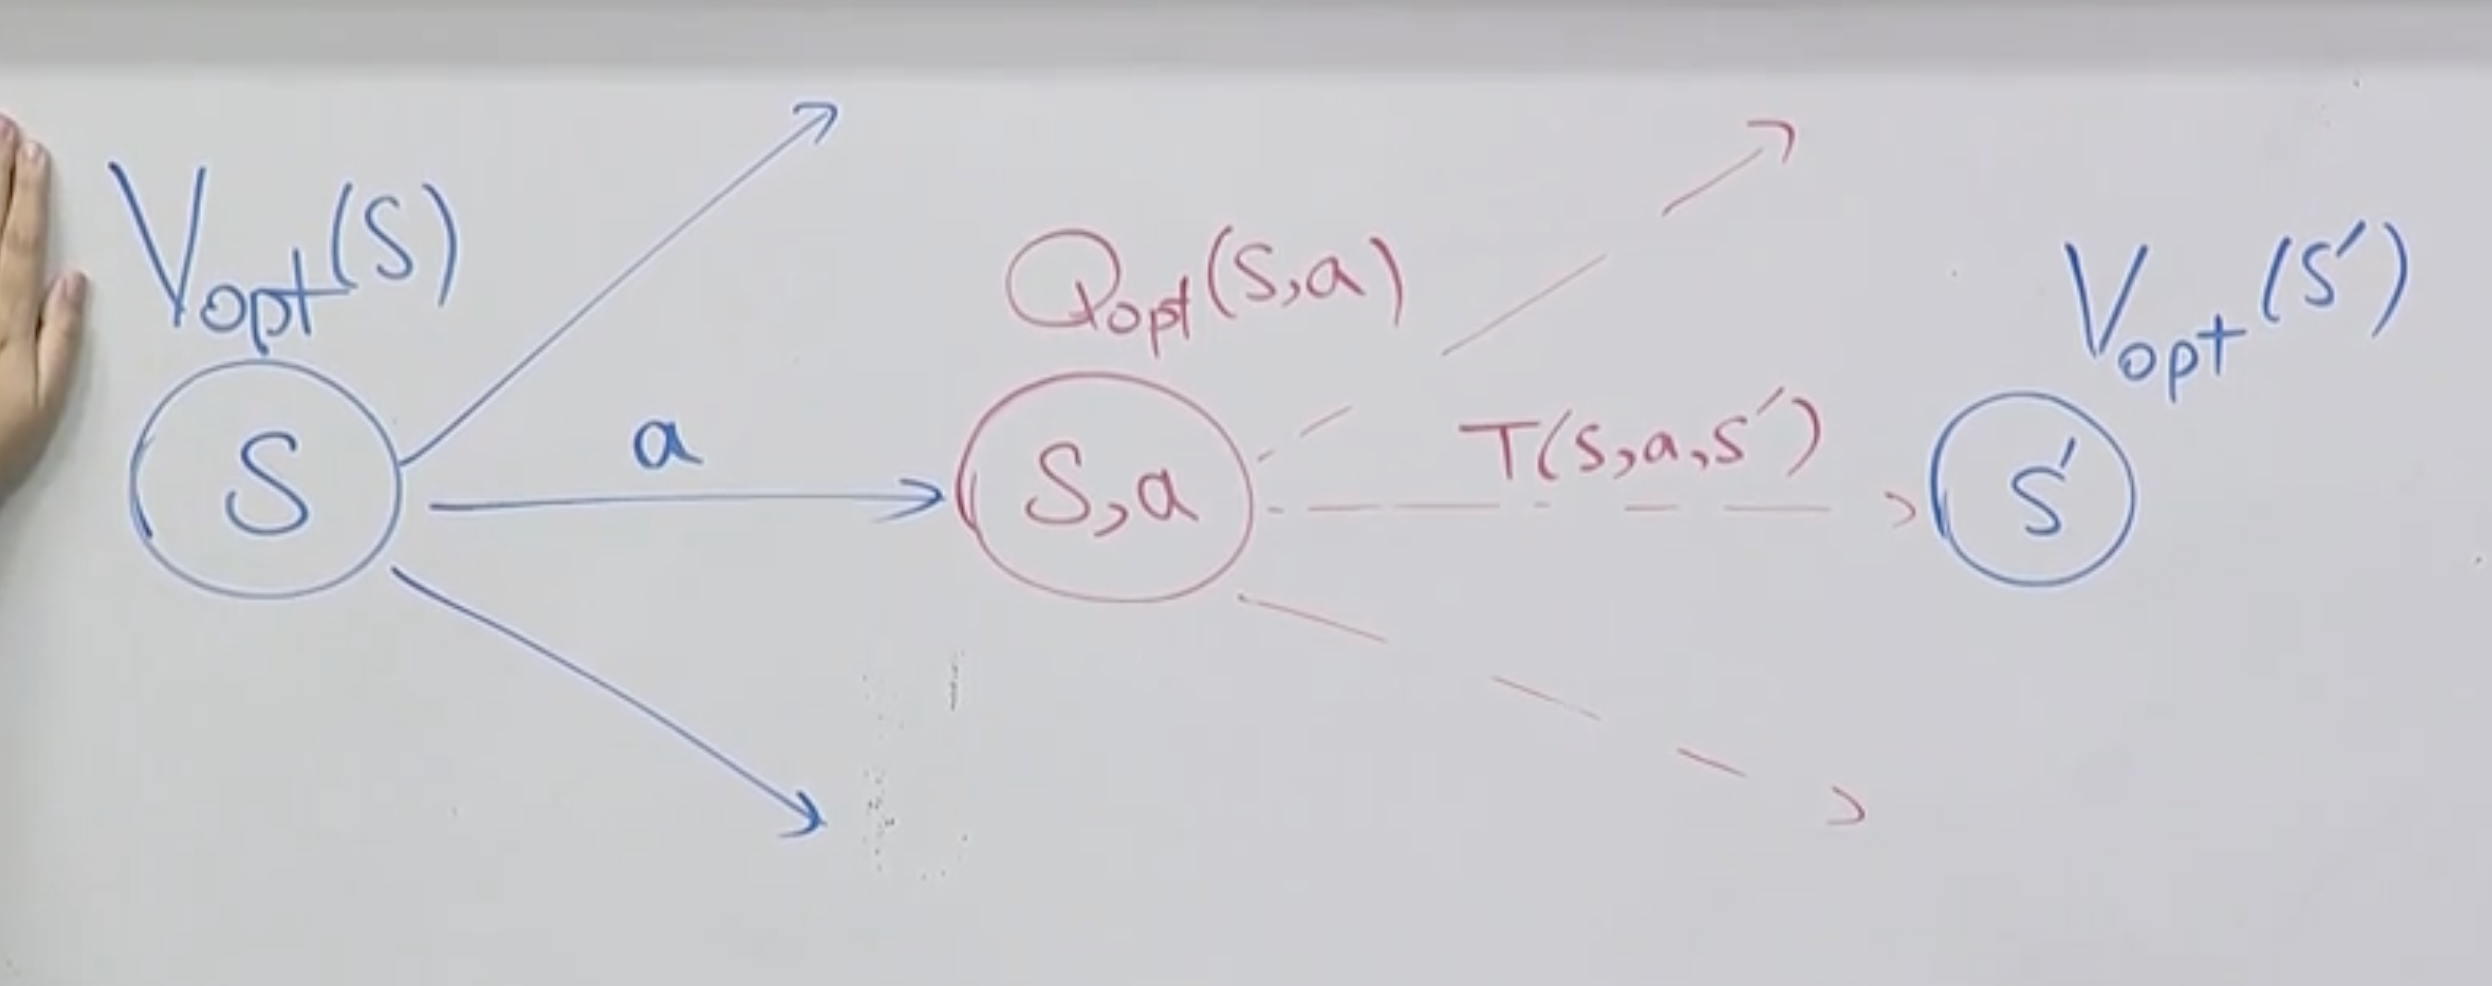 V_opt(S)
S
a
Q_opt(S,a)
S,a
T(s,a,s')
V_opt(s')
s'